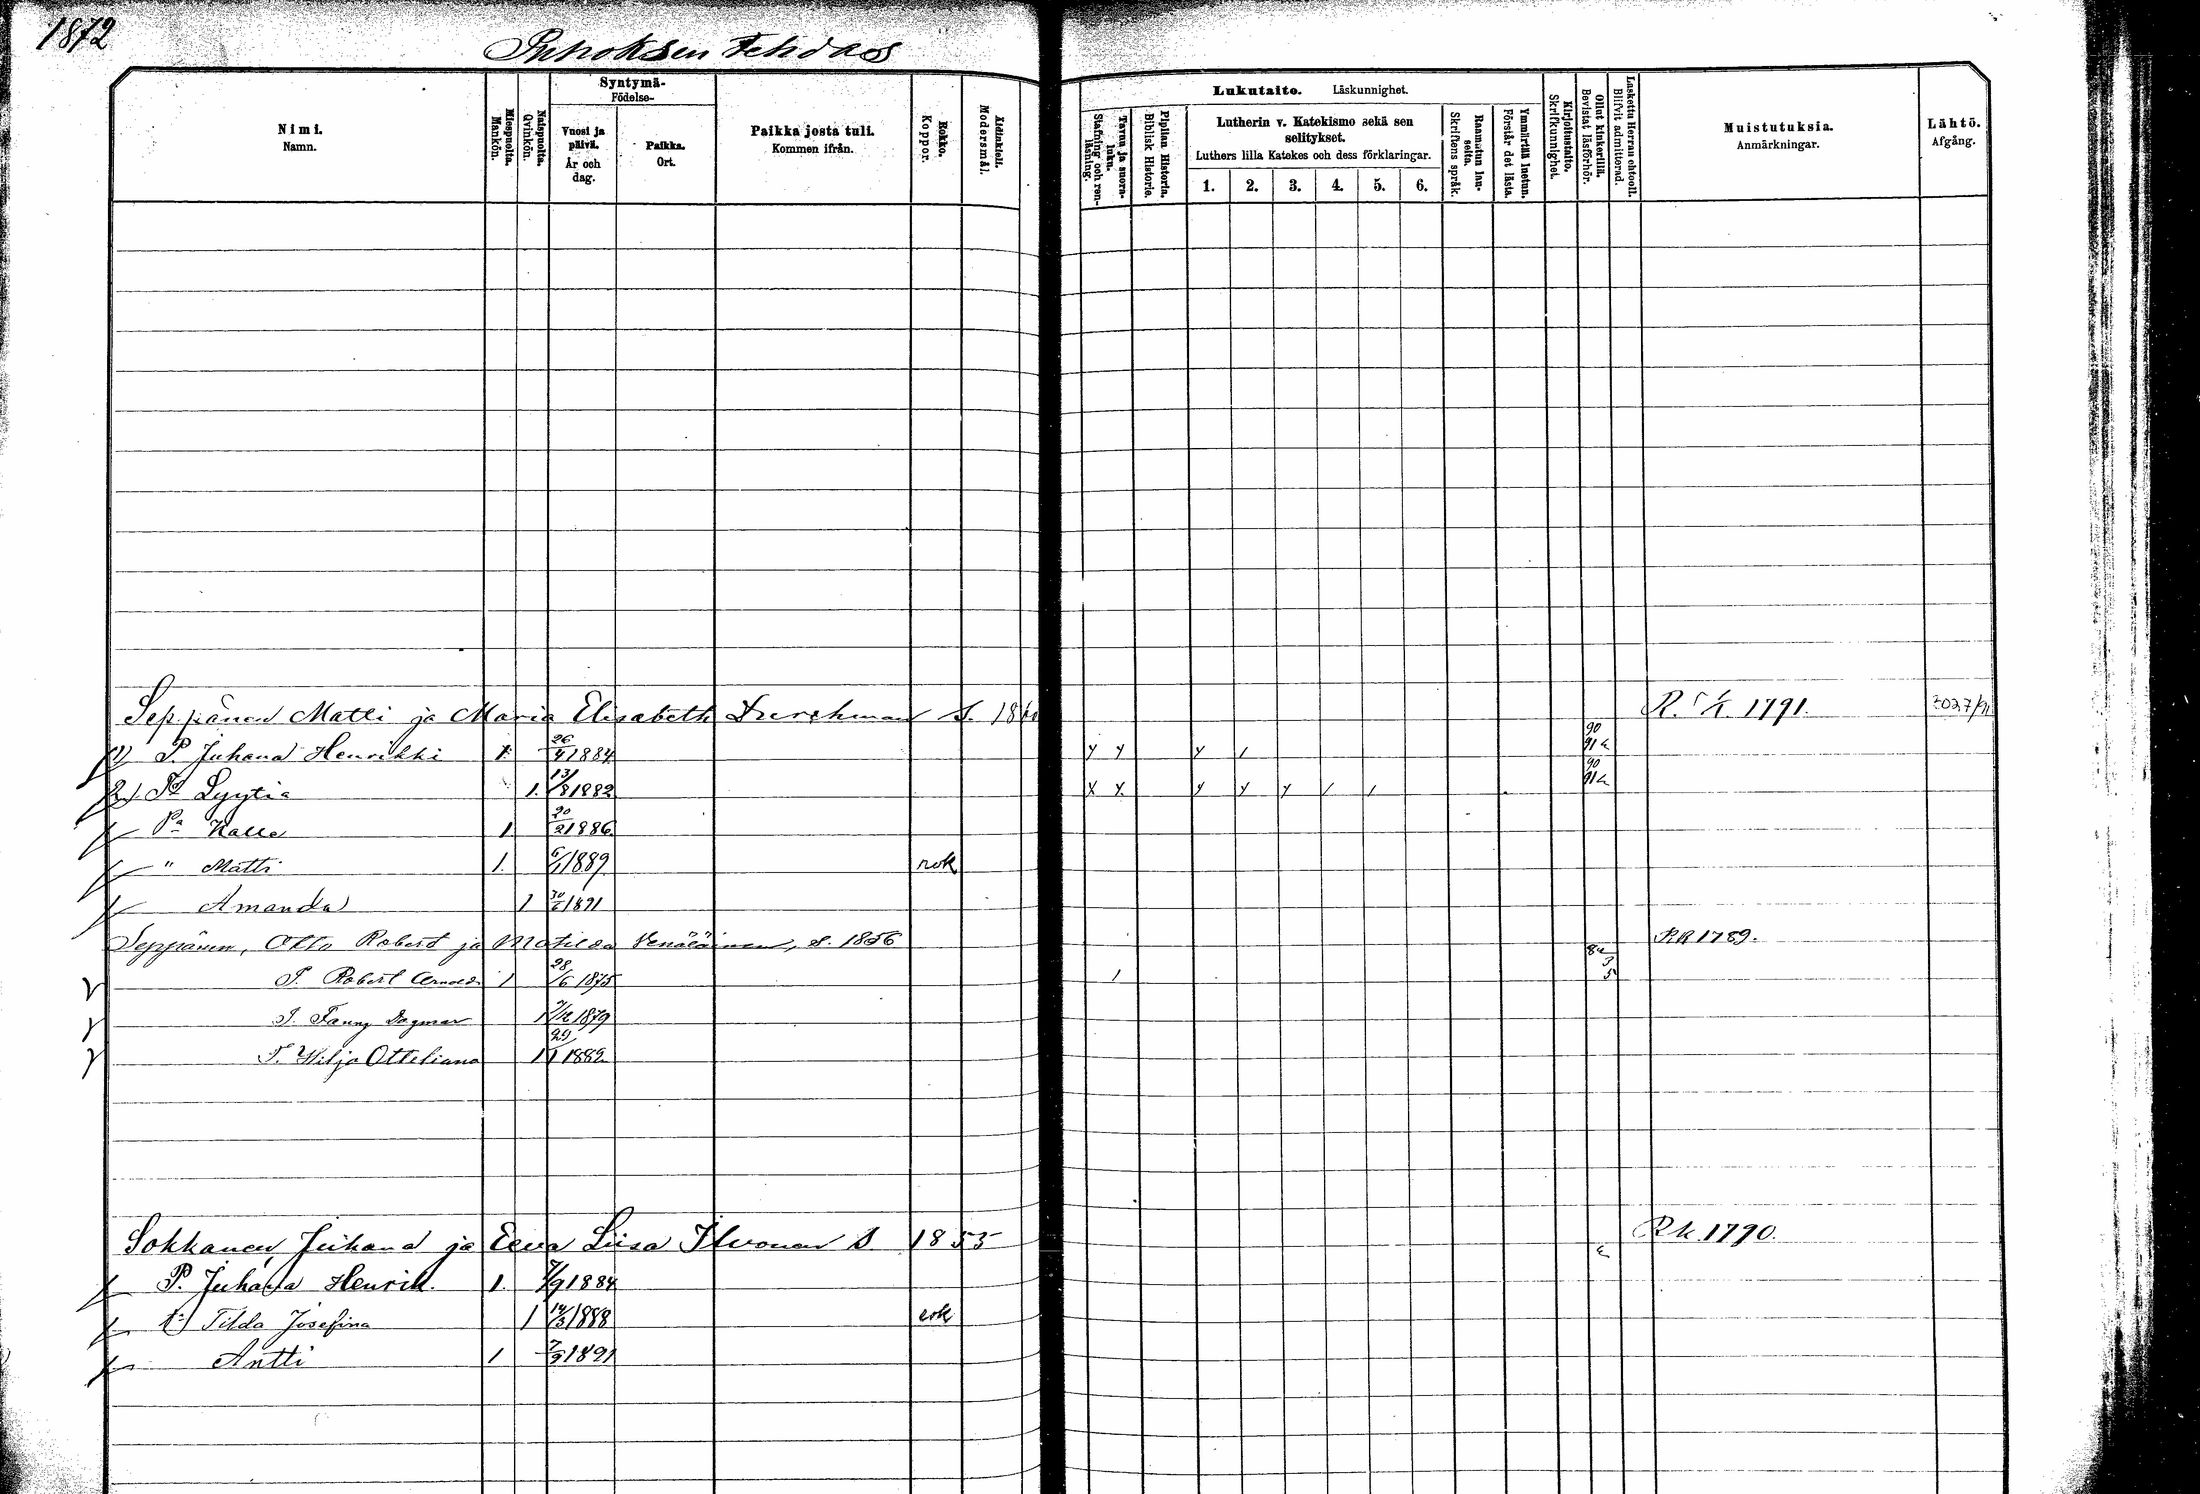 1872
Puhoksen Tehdas
Nimi. Namn.
Miespuolta. Mankön.
Naispuolta. Qvinkön.
Syntymä- Födelse-
Vuosi ja päivä. År och dag.
Paikka. Ort.
Paikka josta tuli. Kommen ifrån.
Rokko. Koppor.
Äidinkieli. Modersmål.
Lukutaito. Läskunnighet.
Tavuu ja suora-luku. Stafning och ren-läsning.
Piplian Historia. Biblisk Historie.
Lutherin v. Katekismo sekä sen selitykset.
Luthers lilla Katekes och dess förklaringar.
1. 2. 3. 4. 5. 6.
Raamatun lau-seita. Skriftens språk.
Ymmärtää luetun. Förstår det lästa.
Kirjoitustaito. Skrifkunnighet.
Ollut kinkerillä. Bevistat läsförhör.
Laskettu Herran ehtooll. Blifvit admitterad.
Muistutuksia. Anmärkningar.
Lähtö. Afgång.
Seppänen Matti ja Maria Elisabeth Durchman S. R. 1791. 3027/91
1) P. Juhana Henrikki 1 26/4 1884 y y y 1 90 91
2) Lyytia 1. 13/8 1882 x y y y y 1 1 90 91
Pa Kalle 1 20/2 1886
" Matti 1. 6/1 1889 rok
Amanda 1 1891
Seppänen, Otto Robert ja Matilda Venäläinen, s. 1856 RK 1789.
P. Robert Arnold 1 28/6 1875 1 3 5
T. Fanny Dagmar 1 1879
T. Wilja Otteliana 1 29/1 1882
Sokkanen, Juhana ja Eeva Liisa Ilvonen S. 1853 Rk. 1790.
P. Juhana Henrik. 1. 7/9 1884
Tilda Josefina 1 14/3 1888 rok
Antti 1 7/9 1891